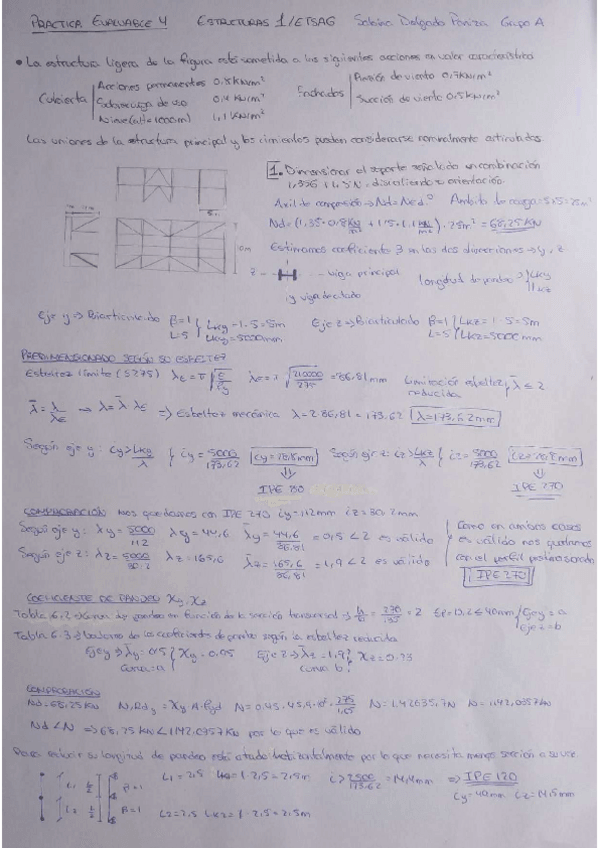 PRACTICA EVALUABLE 4 ESTRUCTURAS 1/ETSAG Sabina Delgado Grupo A
• La estructura ligera de la figura está sometida a las siguientes acciones en valor característico
Cubierta
Acciones permanentes 0.8 kN/m²
Sobrecarga de uso 0.4 kN/m²
Nieve (alt=1000m) 1.1 kN/m²
Fachadas
Presión de viento 0.7 kN/m²
Succión de viento 0.5 kN/m²
Las uniones de la estructura principal y los cimientos pueden considerarse nominalmente articuladas.
1. Dimensionar el soporte señalado en combinación
1,35G + 1,5N, discutiendo su orientación
Axil de compresión → Nd = Ned. Ámbito de carga = 5x5 = 25m²
Nd = (1,35·0.8 kN/m² + 1.5·1.1 kN/m²)·25m² = 68,25 KN
Estimamos coeficiente β en las dos direcciones → y, z
z → --- viga principal
y viga de atado
longitud de pandeo Lky Lkz
Eje y → Biarticulado β=1 L=5 Lky = 1·5 = 5m Lky = 5000mm
Eje z → Biarticulado β=1 L=5 Lkz = 1·5 = 5m Lkz = 5000mm
PREDIMENSIONADO SEGÚN SU ESBELTEZ
Esbeltez límite (S275) λE = π √E/fy λE = π √210000/275 = 86,81mm Limitación esbeltez reducida λ̄ ≤ 2
λ̄ = λ/λE → λ = λ̄·λE => Esbeltez mecánica λ = 2·86,81 = 173.62 λ=173.62mm
Según eje y: iy > Lky/λ iy = 5000/173.62 iy = 28,8mm
Según eje z: iz > Lkz/λ iz = 5000/173.62 iz = 28.8mm
IPE 80
IPE 270
COMPROBACIÓN nos quedamos con IPE 270 iy=112mm iz=30.2mm
Según eje y: λy = 5000/112 λy = 44,6 λ̄y = 44,6/86,81 = 0,5 < 2 es válido
Según eje z: λz = 5000/30,2 λz = 165,6 λ̄z = 165,6/86,81 = 1,9 < 2 es válido
Como en ambos casos
es válido nos quedamos
con el perfil
IPE 270
COEFICIENTE DE PANDEO Xy, Xz
Tabla 6.2 → Curva de pandeo en función de la sección transversal → h/b = 270/135 = 2 Ep=10,2 ≤ 40mm Eje y = a Eje z = b
Tabla 6.3 → valores de los coeficientes de pandeo según la esbeltez reducida
Eje y → λ̄y = 0.5 curva = a Xy = 0.95 Eje z → λ̄z = 1,9 curva b Xz = 0.23
COMPROBACIÓN
Nd = 68,25KN
Nd < N → 68,25 KN < 1142.0357KN por lo que es válido
longitud de pandeo está atado horizontalmente por lo que necesita menos sección
L1 = 2,5 Lk = 1·2,5 = 2,5m i > 2500/173.62 = 14,4mm => IPE 120
iy = 49mm iz = 14,5mm
L1 L/2 β=1
L2 L/2 β=1
L2 = 2,5 Lk2 = 1·2.5 = 2,5m